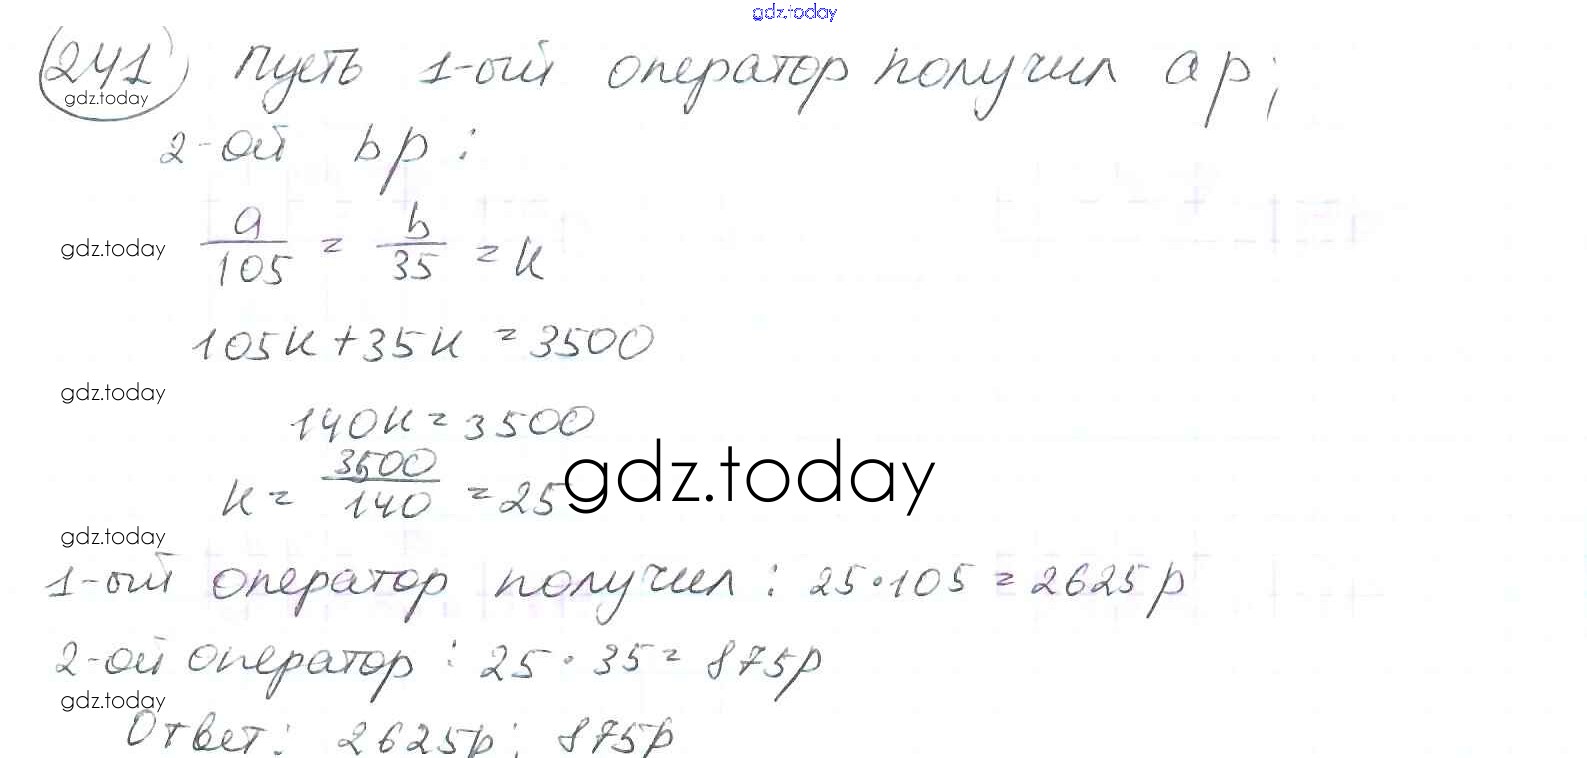 gdz.today
241) Пусть 1-ый оператор получил a р;
gdz.today
2-ой b р:
a/105 = b/35 = к
gdz.today
105к+35к = 3500
gdz.today
140к = 3500
к = 3500/140 = 25
gdz.today
gdz.today
1-ый оператор получил: 25·105 = 2625р
2-ой оператор: 25·35 = 875р
gdz.today
Ответ: 2625р; 875р